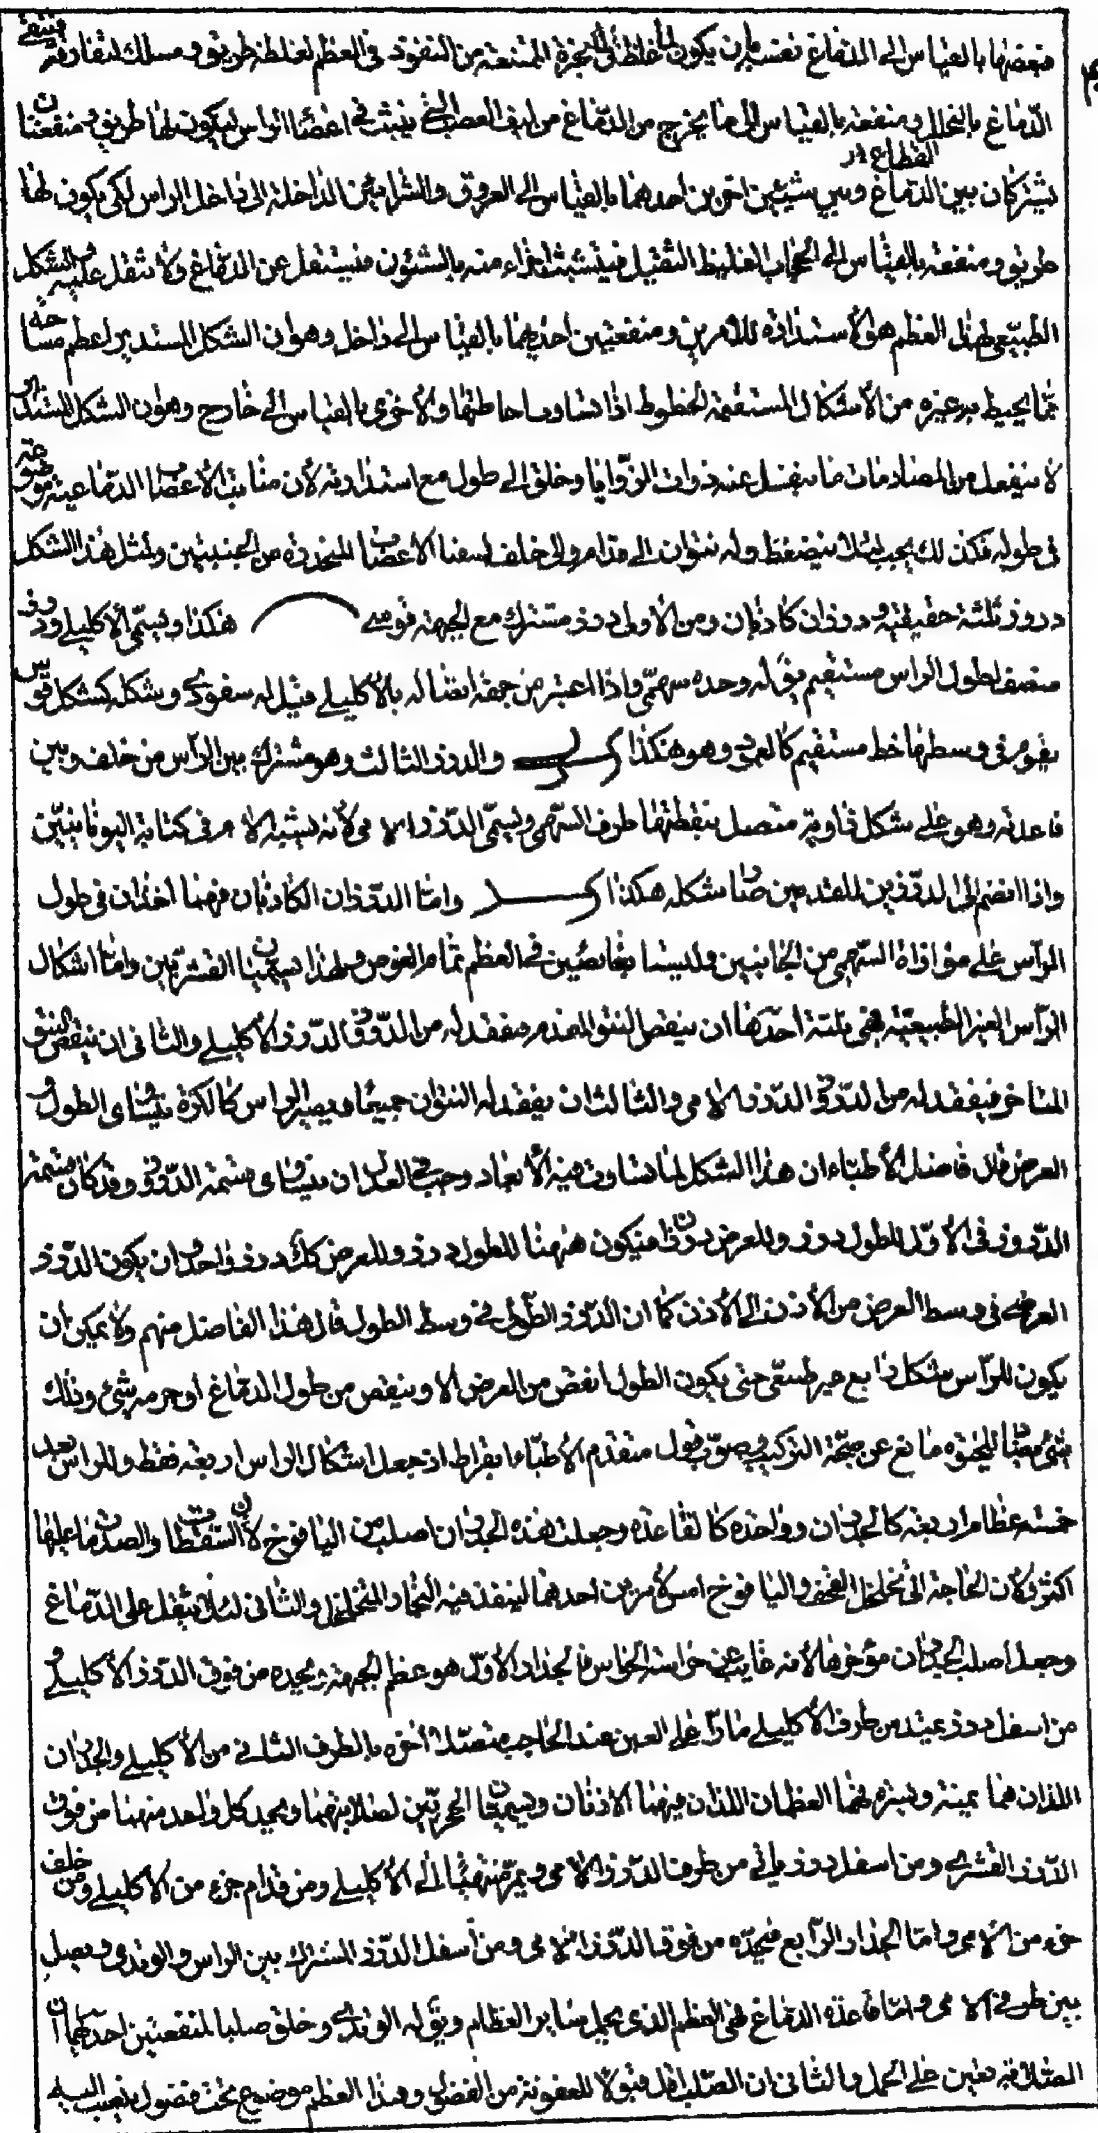 فبعضها بالقياس الى الدماغ نفسه بان يكون لما غلظ فى الابخرة الممتنعة من النفوذ فى العظم لغلظه طريق و مسالك لتفارقه فينقى
الدماغ بالتحلل و منفعة بالقياس الى ما يخرج من الدماغ من ليف العصب الذى ينبث فى اعضاء الراس ليكون لها طريق و منفعتان
القطاع ور
تشتركان بين الدماغ و بين شيئين اخرين احدهما بالقياس الى العروق و الشرائين الداخلة الى داخل الراس لكى يكون لها
طريق و منفعة بالقياس الى الحجاب الغليظ الثقيل فيتشبث اجزاء منه بالشئون فيستقل عن الدماغ ولا يثقل عليه و الشكل
الطبيعى لهذا العظم هو الاستدارة لامرين و منفعتين احديهما بالقياس الى داخل و هو ان الشكل المستدير اعظم مساحة
مما يحيط به غيره من الاشكال المستقيمة الخطوط اذا تساوت احاطتها و الاخرى بالقياس الى خارج و هو ان الشكل المستدير
لا ينفعل من المصادمات ما ينفعل عنه ذوات الزوايا و خلق الى طول مع استدارته لان منابت الاعصاب الدماغية موضوعة
فى طوله و كذلك يجب لئلا ينضغط و له نتوان الى قدام و الى خلف ليقيا الاعصاب المنحدرة من الجنبتين و لمثل هذا الشكل
دروز ثلثة حقيقية و درزان كاذبان و من الاولى درز مشترك مع الجبهة قوسى هكذا و يسمى الاكليلى و درز
منصف لطول الراس مستقيم يقال له وحده سهمى و اذا اعتبر من جهة اتصاله بالاكليلى قيل له سفودى و شكله كشكل قوس
يقوم فى وسطها خط مستقيم كالعمود و هو هكذا و الدرز الثالث و هو مشترك بين الراس من خلف و بين
قاعدته و هو على شكل زاوية متصل بنقطتها طرف السهمى و يسمى الدرز اللامى لانه يشبه اللام فى كتابة اليونانيين
و اذا انضم الى الدرزين المقدمين صار شكله هكذا و اما الدرزان الكاذبان فهما اخذان فى طول
الراس على موازاة السهمى من الجانبين و ليسا بغائصين فى العظم تمام الغوص و لهذا يسميان القشريين و اما اشكال
الراس الغير الطبيعية فهى ثلثة احدها ان ينقص النتو المقدم فيفقد له من الدروز الدرز الاكليلى و الثانى ان ينقص النتو
المتاخر فيفقد له من الدروز الدرز اللامى و الثالث ان يفقد له النتوان جميعا و يصير الراس كالكرة متساوى الطول و
العرض قال فاضل الاطباء ان هذا الشكل لما تساوى فيه الابعاد وجب فى العدل ان يتساوى قسمة الدروز و قد كان قسمة
الدروز فى الاول للطول درز و للعرض درزان فيكون ههنا للطول درز و للعرض كذلك درز واحد و ان يكون الدرز
العرضى فى وسط العرض من الاذن الى الاذن كما ان الدرز الطولى فى وسط الطول قال هذا الفاضل منهم و لا يمكن ان
يكون للراس شكل رابع غير طبيعى حتى يكون الطول انقص من العرض الا و ينقص من طول الدماغ او جرمه شئ و ذلك
مضاد للحيوة مانع عن صحة التركيب و صوب قول متقدم الاطباء ابقراط اذ جعل اشكال الراس اربعة فقط و للراس بعد
خمسة عظام اربعة كالجدران و واحدة كالقاعدة و جعلت هذه الجدران اصلب من اليافوخ لان السقطات و الصدمات عليها
اكثر و لان الحاجة الى تخلخل القحف و اليافوخ امس لامرين احدهما لينفذ فيه البخار المتحلل و الثانى لئلا يثقل على الدماغ
و جعل اصلب الجدران مؤخرها لانه غائب عن حراسة الحواس فالجدار الاول هو عظم الجبهة و يحده من فوق الدرز الاكليلى و
من اسفل درز يمتد من طرف الاكليلى مارا على العين عند الحاجب متصلا آخره بالطرف الثانى من الاكليلى و الجداران
اللذان هما يمنة و يسرة فهما العظمان اللذان فيهما الاذنان و يسميان الحجريين لصلابتهما و يحد كل واحد منهما من فوق
الدرز القشرى و من اسفل درز ياتى من طرف الدرز اللامى و يمر منتهيا الى الاكليلى و من قدام جزء من الاكليلى و من خلف
جزء من اللامى و اما الجدار الرابع فيحده من فوق الدرز اللامى و من اسفل الدرز المشترك بين الراس و الوتدى و يصل
بين طرفى اللامى و اما قاعدة الدماغ فهى العظم الذى يحمل سائر العظام و يقال له الوتدى و خلق صلبا لمنفعتين احديهما ان
الصلابة تعين على الحمل و الثانى ان الصلب اقل قبولا للعفونة من الفضول و هذا العظم موضوع تحت فضول تنصب اليه